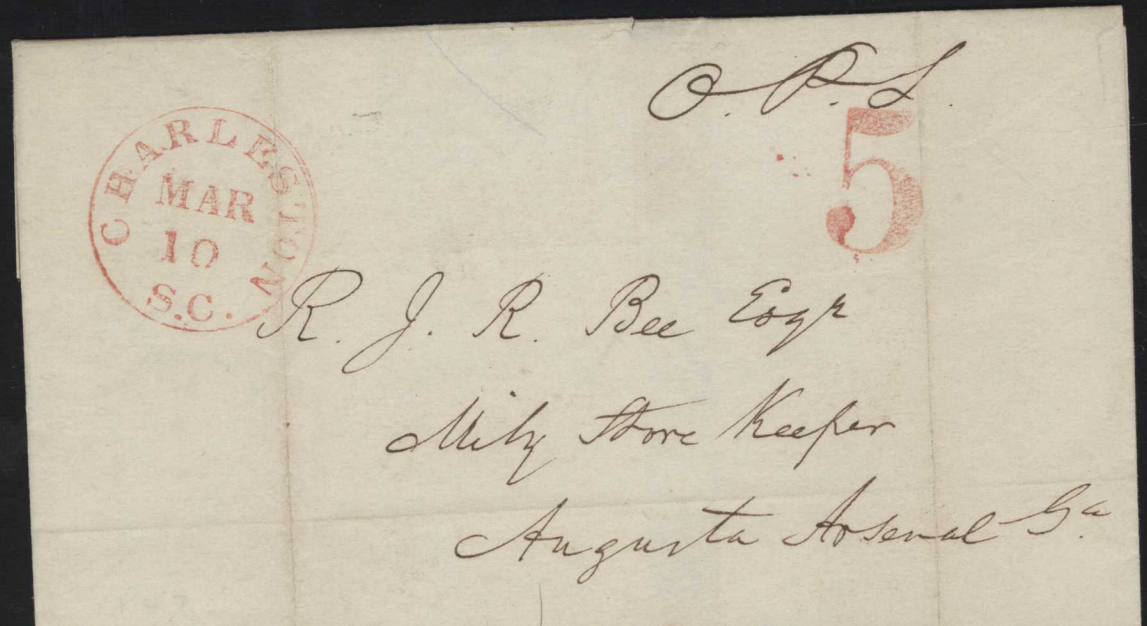 O. P. S.
CHARLESTON
MAR
10
S.C.
5
R. J. R. Bee Esqr
Mily Store Keeper
Augusta Arsenal Ga